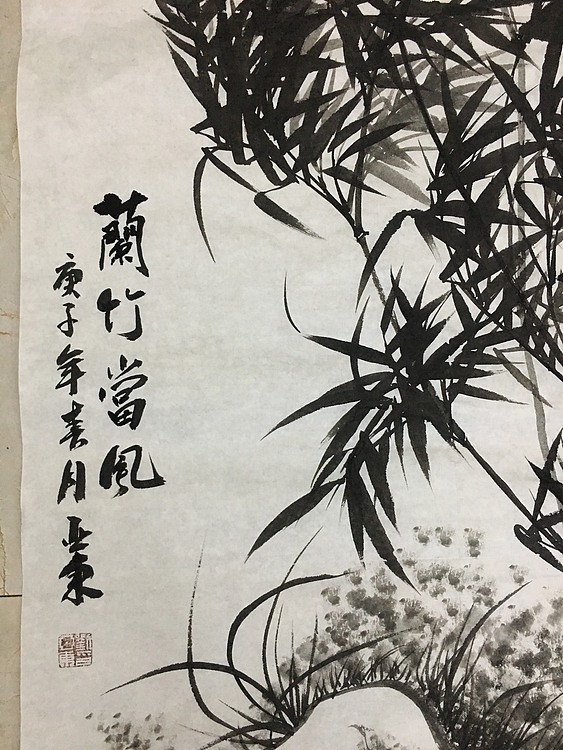 蘭竹當風
庚子年春月亚東